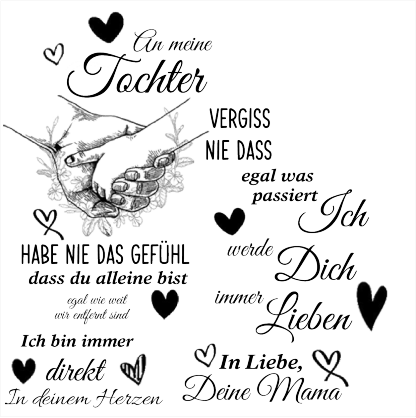 An meine
Tochter
VERGISS
NIE DASS
egal was
passiert
Ich
werde
Dich
immer
Lieben
HABE NIE DAS GEFÜHL
dass du alleine bist
egal wie weit
wir entfernt sind
Ich bin immer
direkt
In deinem Herzen
In Liebe,
Deine Mama